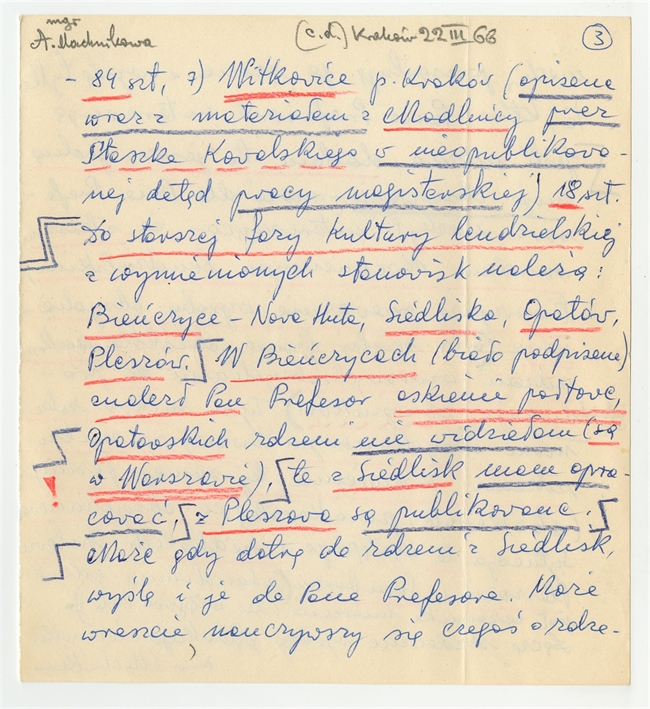 mgr
A. Machnikowa (c.d.) Kraków 22 III 66 3
- 84 szt, 7) Witkowice p. Kraków (opisane
wraz z materiałem z Modlnicy przez
Płaszka Kowalskiego w nieopublikowa-
nej dotąd pracy magisterskiej) 18 szt.
Do starszej fazy kultury lendzielskiej
z wymienionych stanowisk należą:
Bieńczyce - Nowa Huta, Siedliska, Opatów,
Pleszów. W Bieńczycach (biało podpisane)
znalazł Pan Profesor
Opatowskich rdzeni nie widziałam (są
w Warszawie), te z Siedlisk mam opra-
cować, z Pleszowa są publikowane.
Może gdy dotrę do rdzeni z Siedlisk,
wyślę i je do Pana Profesora. Może
wreszcie nauczywszy się czegoś o rdze-